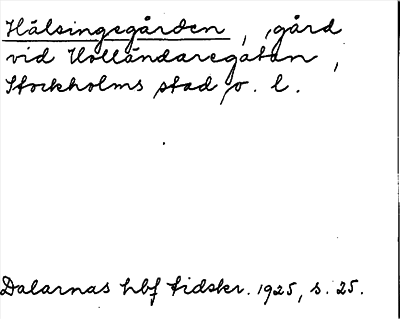 Hälsingegården, gård
vid Holländaregatan,
Stockholms stad o. l.
Dalarnas hbf tidskr. 1925, s. 25.